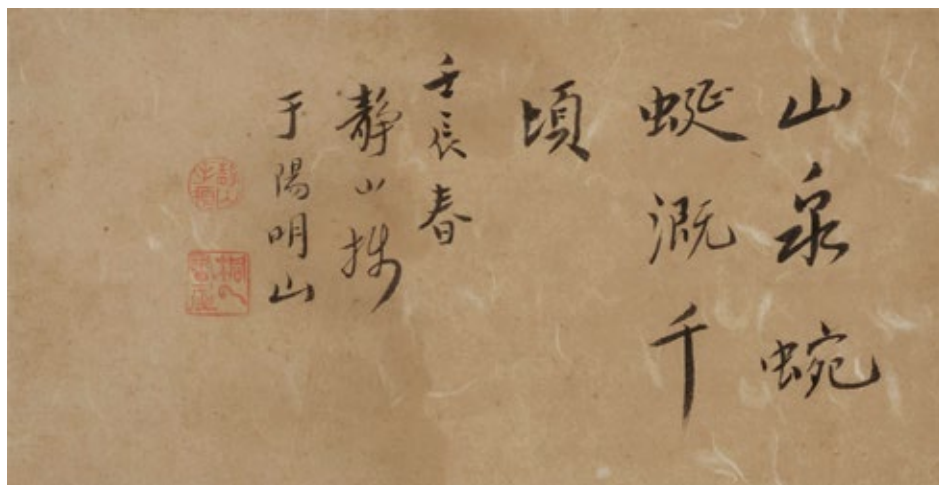 山泉蜿
蜒溉千
頃
壬辰春
静山揚
于陽明山